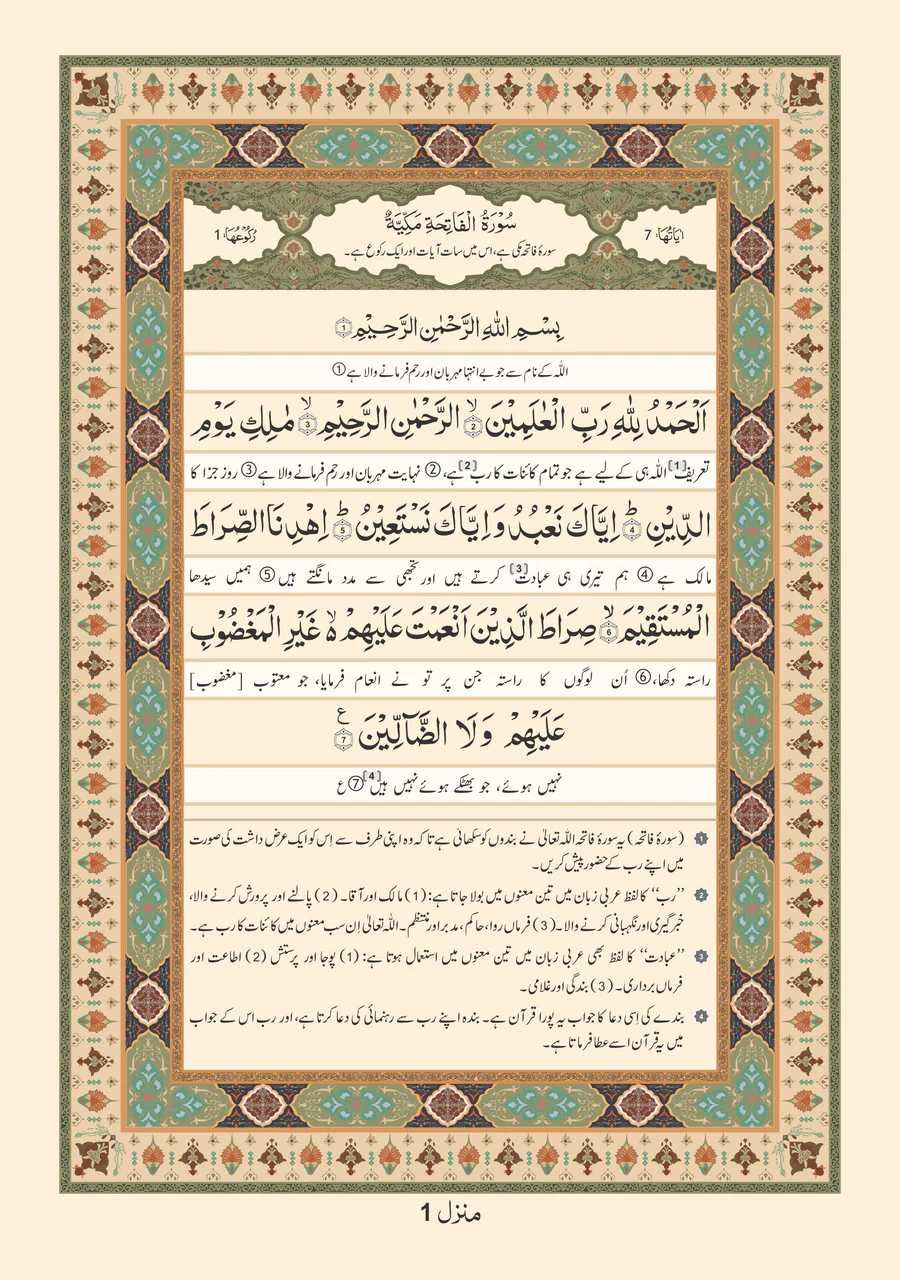 اٰيَاتُهَا: 7
سُوْرَةُ الْفَاتِحَةِ مَكِّيَّةٌ
رُكُوْعُهَا: 1
سورۂ فاتحہ مکی ہے، اس میں سات آیات اور ایک رکوع ہے۔
بِسْمِ اللّٰهِ الرَّحْمٰنِ الرَّحِيْمِ ۝1
اللہ کے نام سے جو بے انتہا مہربان اور رحم فرمانے والا ہے ①
اَلْحَمْدُ لِلّٰهِ رَبِّ الْعٰلَمِيْنَ ۝2ۙ الرَّحْمٰنِ الرَّحِيْمِ ۝3ۙ مٰلِكِ يَوْمِ
تعریف[1] اللہ ہی کے لیے ہے جو تمام کائنات کا رب[2] ہے، ② نہایت مہربان اور رحم فرمانے والا ہے ③ روز جزا کا
الدِّيْنِ ۝4ؕ اِيَّاكَ نَعْبُدُ وَ اِيَّاكَ نَسْتَعِيْنُ ۝5ؕ اِهْدِنَا الصِّرَاطَ
مالک ہے ④ ہم تیری ہی عبادت[3] کرتے ہیں اور تجھی سے مدد مانگتے ہیں ⑤ ہمیں سیدھا
الْمُسْتَقِيْمَ ۝6ۙ صِرَاطَ الَّذِيْنَ اَنْعَمْتَ عَلَيْهِمْ ۵ۙ غَيْرِ الْمَغْضُوْبِ
راستہ دکھا، ⑥ اُن لوگوں کا راستہ جن پر تو نے انعام فرمایا، جو معتوب [مغضوب]
عَلَيْهِمْ وَلَا الضَّآلِّيْنَ ۝7 ع
نہیں ہوئے، جو بھٹکے ہوئے نہیں ہیں[4] ⑦ ع
1 (سورۂ فاتحہ) یہ سورۂ فاتحہ اللہ تعالیٰ نے بندوں کو سکھائی ہے تاکہ وہ اپنی طرف سے اِس کو ایک عرض داشت کی صورت
میں اپنے رب کے حضور پیش کریں۔
2 ”رب“ کا لفظ عربی زبان میں تین معنوں میں بولا جاتا ہے: (1) مالک اور آقا۔ (2) پالنے اور پرورش کرنے والا،
خبر گیری اور نگہبانی کرنے والا۔ (3) فرماں روا، حاکم، مدبر اور منتظم۔ اللہ تعالیٰ اِن سب معنوں میں کائنات کا رب ہے۔
3 ”عبادت“ کا لفظ بھی عربی زبان میں تین معنوں میں استعمال ہوتا ہے: (1) پوجا اور پرستش (2) اطاعت اور
فرماں برداری۔ (3) بندگی اور غلامی۔
4 بندے کی اِسی دعا کا جواب یہ پورا قرآن ہے۔ بندہ اپنے رب سے رہنمائی کی دعا کرتا ہے، اور رب اس کے جواب
میں یہ قرآن اسے عطا فرماتا ہے۔
منزل 1